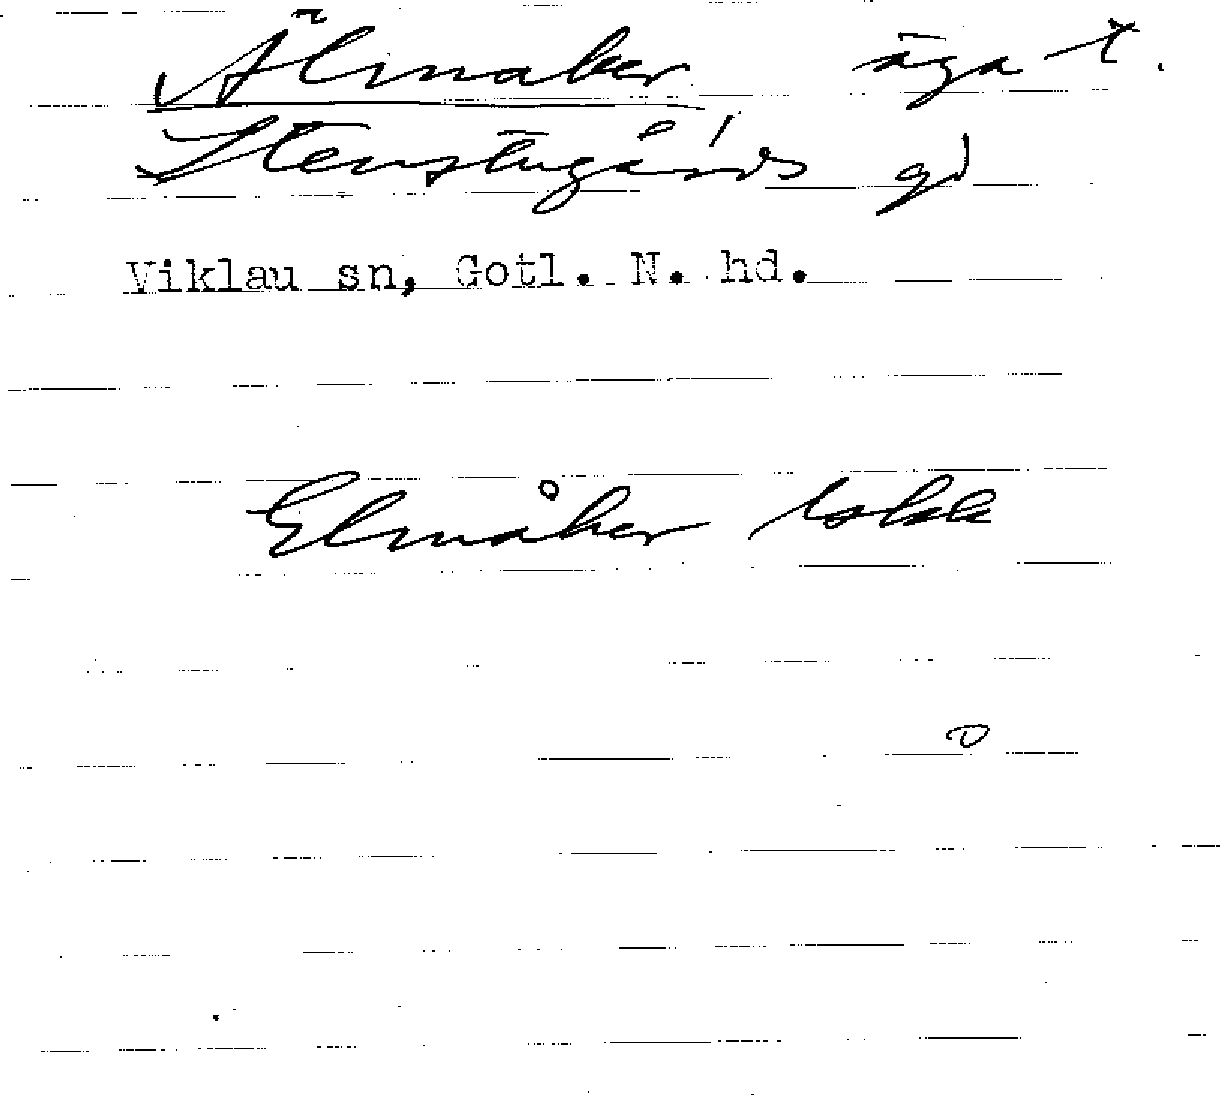 Älmaker äga t.
Stenstugårds gd
Viklau sn, Gotl. N. hd.
Elmåker